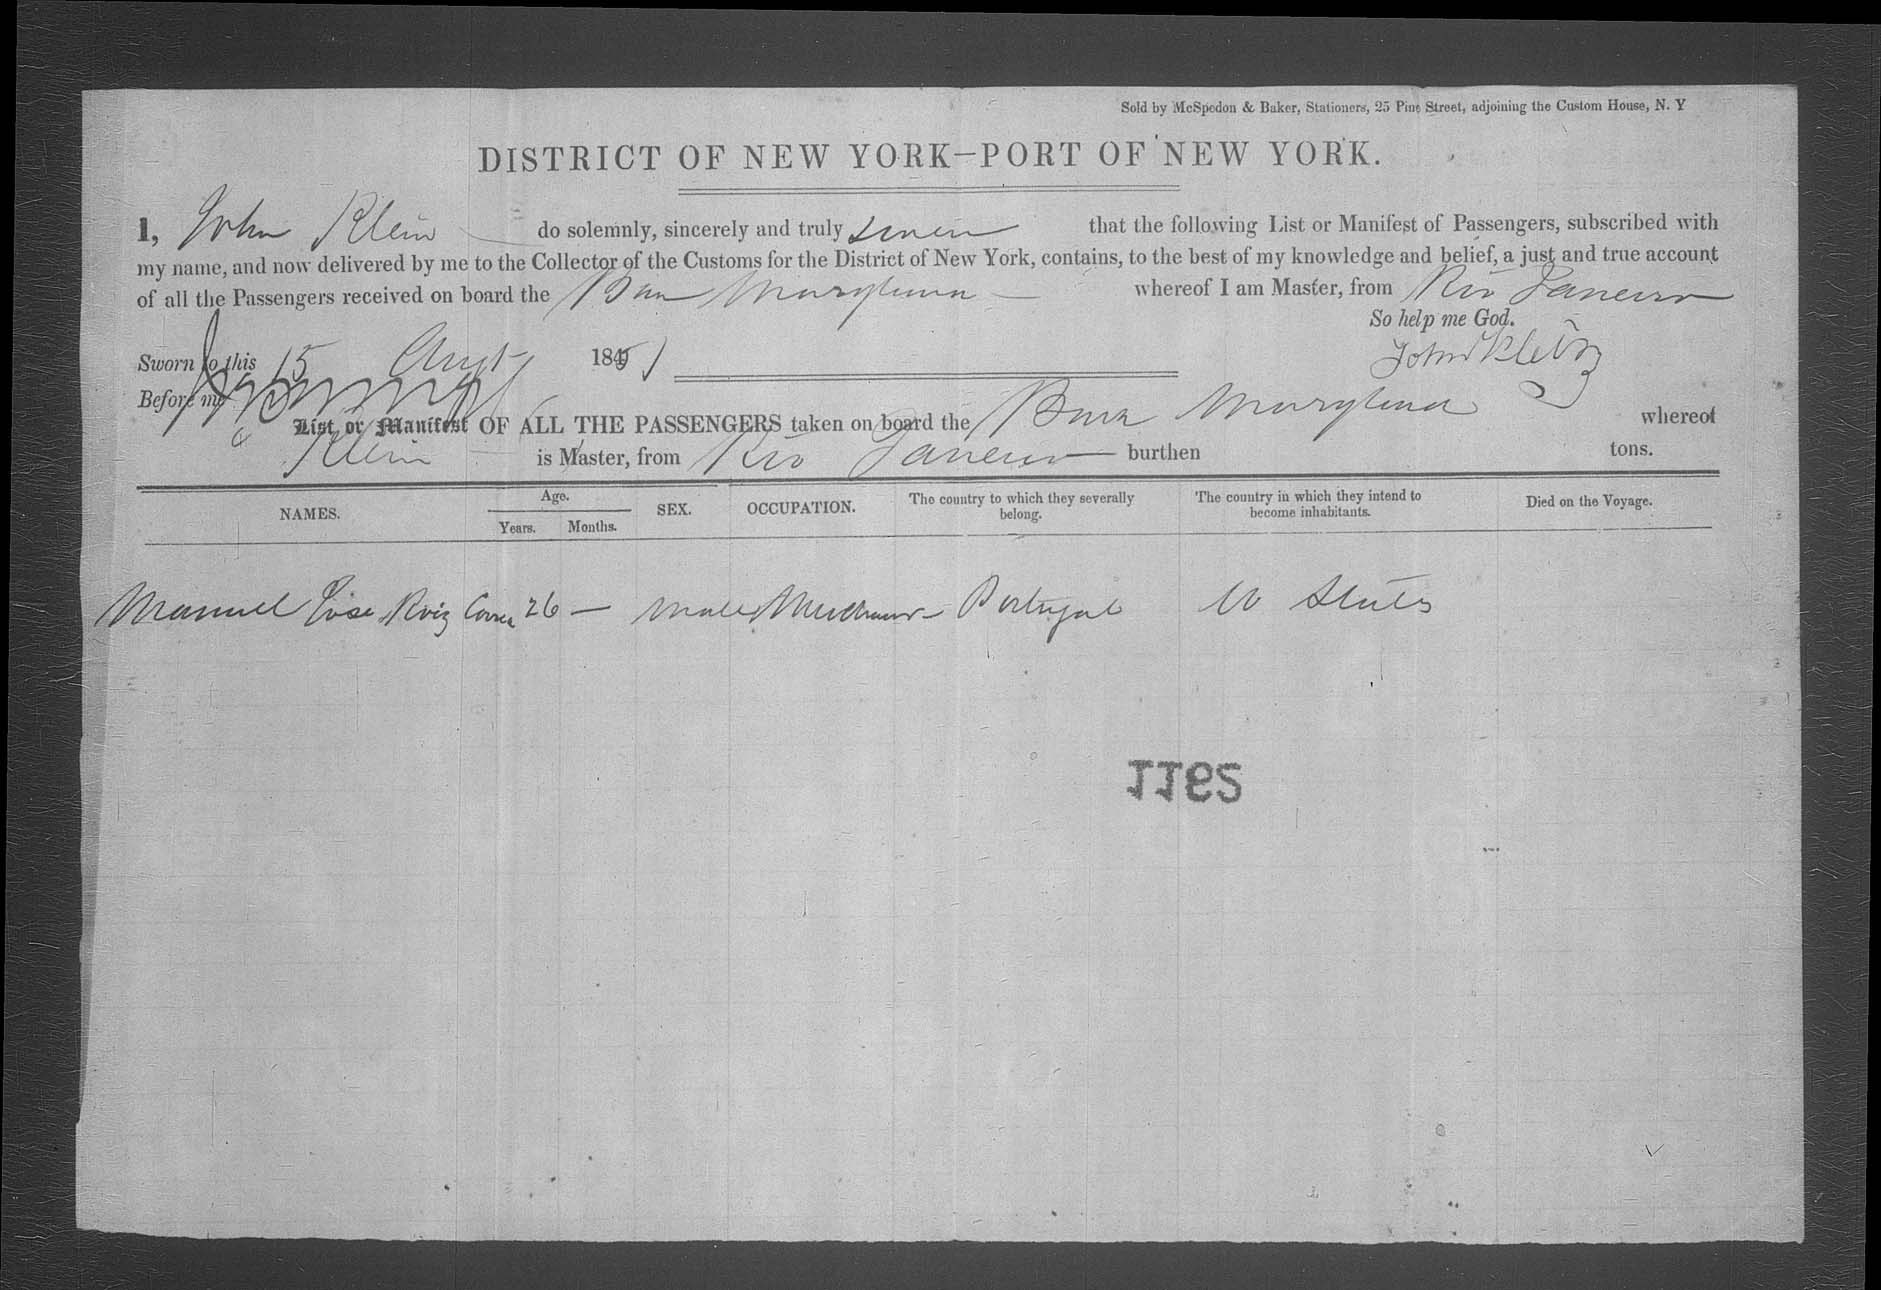 Sold by McSpedon & Baker, Stationers, 25 Pine Street, adjoining the Custom House, N. Y
DISTRICT OF NEW YORK—PORT OF NEW YORK.
I, John Klein do solemnly, sincerely and truly swear that the following List or Manifest of Passengers, subscribed with
my name, and now delivered by me to the Collector of the Customs for the District of New York, contains, to the best of my knowledge and belief, a just and true account
of all the Passengers received on board the Bark whereof I am Master, from Rio Janeiro
So help me God.
Sworn to this 15 Augt 1851
John Klein
Before me
List or Manifest OF ALL THE PASSENGERS taken on board the Bark whereof
Klein is Master, from Rio Janeiro burthen tons.
NAMES. Age. Years. Months. SEX. OCCUPATION. The country to which they severally belong. The country in which they intend to become inhabitants. Died on the Voyage.
Manuel Jose Roiz Correa 26 — Male Merchant Portugal U States
1192